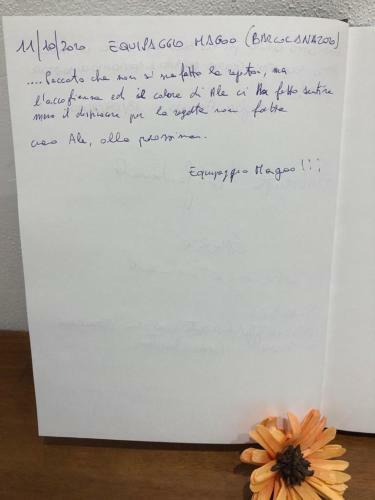 11/10/2020 EQUIPAGGIO MAGOO (BARCOLANA2020)
.... Peccato che non si sia fatto la regata, ma
l'accoglienza ed il calore di Ale ci ha fatto sentire
meno il dispiacere per la regata non fatta
ciao Ale, alla prossima.
Equipaggio Magoo!!!